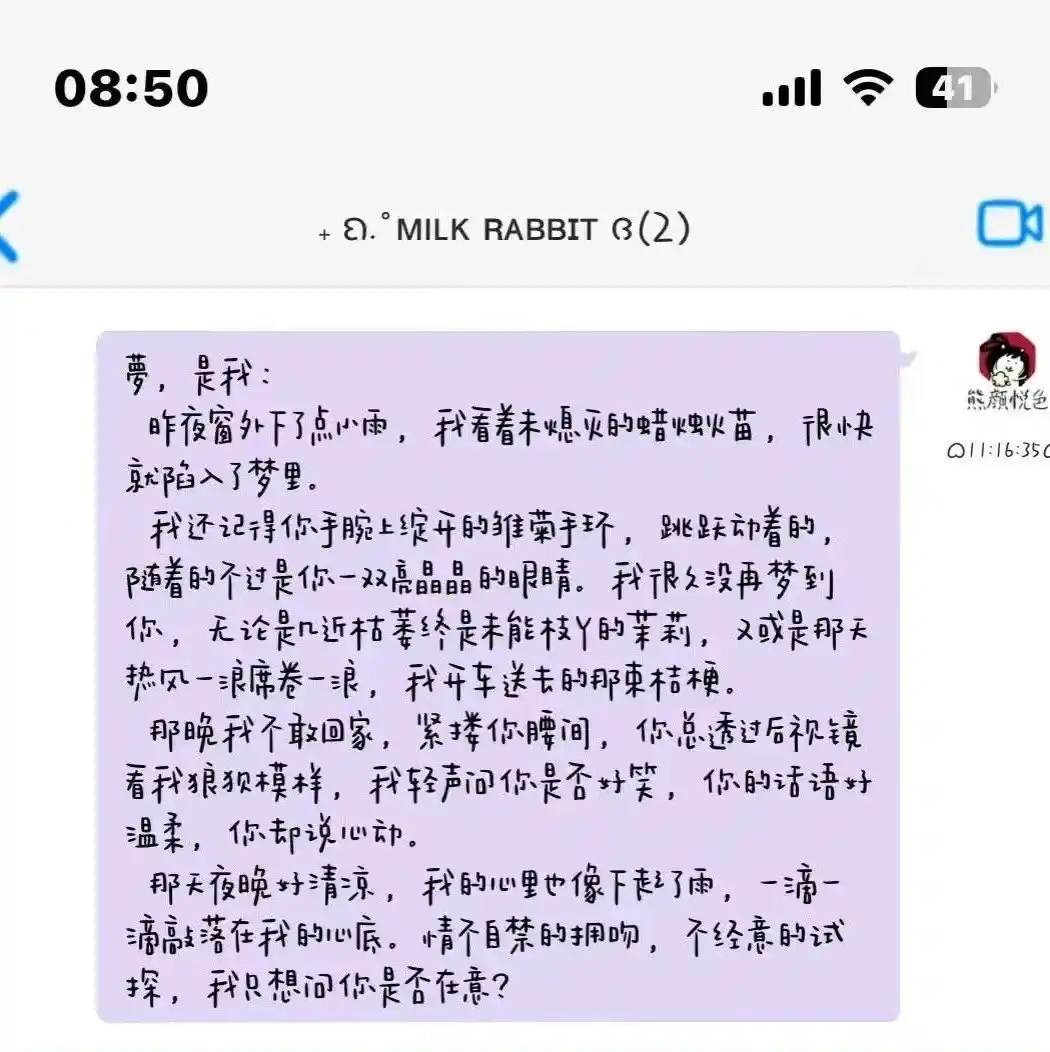 08:50
41
+ ᘏ.˚MILK RABBIT ઉ(2)
夢，是我：
昨夜窗外下了点小雨，我看着未熄灭的蜡烛火苗，很快
就陷入了梦里。
我还记得你手腕上绽开的雏菊手环，跳跃动着的，
随着的不过是你一双亮晶晶的眼睛。我很久没再梦到
你，无论是几近枯萎终是未能枝丫的茉莉，又或是那天
热风一浪席卷一浪，我开车送去的那束桔梗。
那晚我不敢回家，紧搂你腰间，你总透过后视镜
看我狼狈模样，我轻声问你是否好笑，你的话语好
温柔，你却说心动。
那天夜晚好清凉，我的心里也像下起了雨，一滴一
滴敲落在我的心底。情不自禁的拥吻，不经意的试
探，我只想问你是否在意？
熊颜悦色
11:16:35